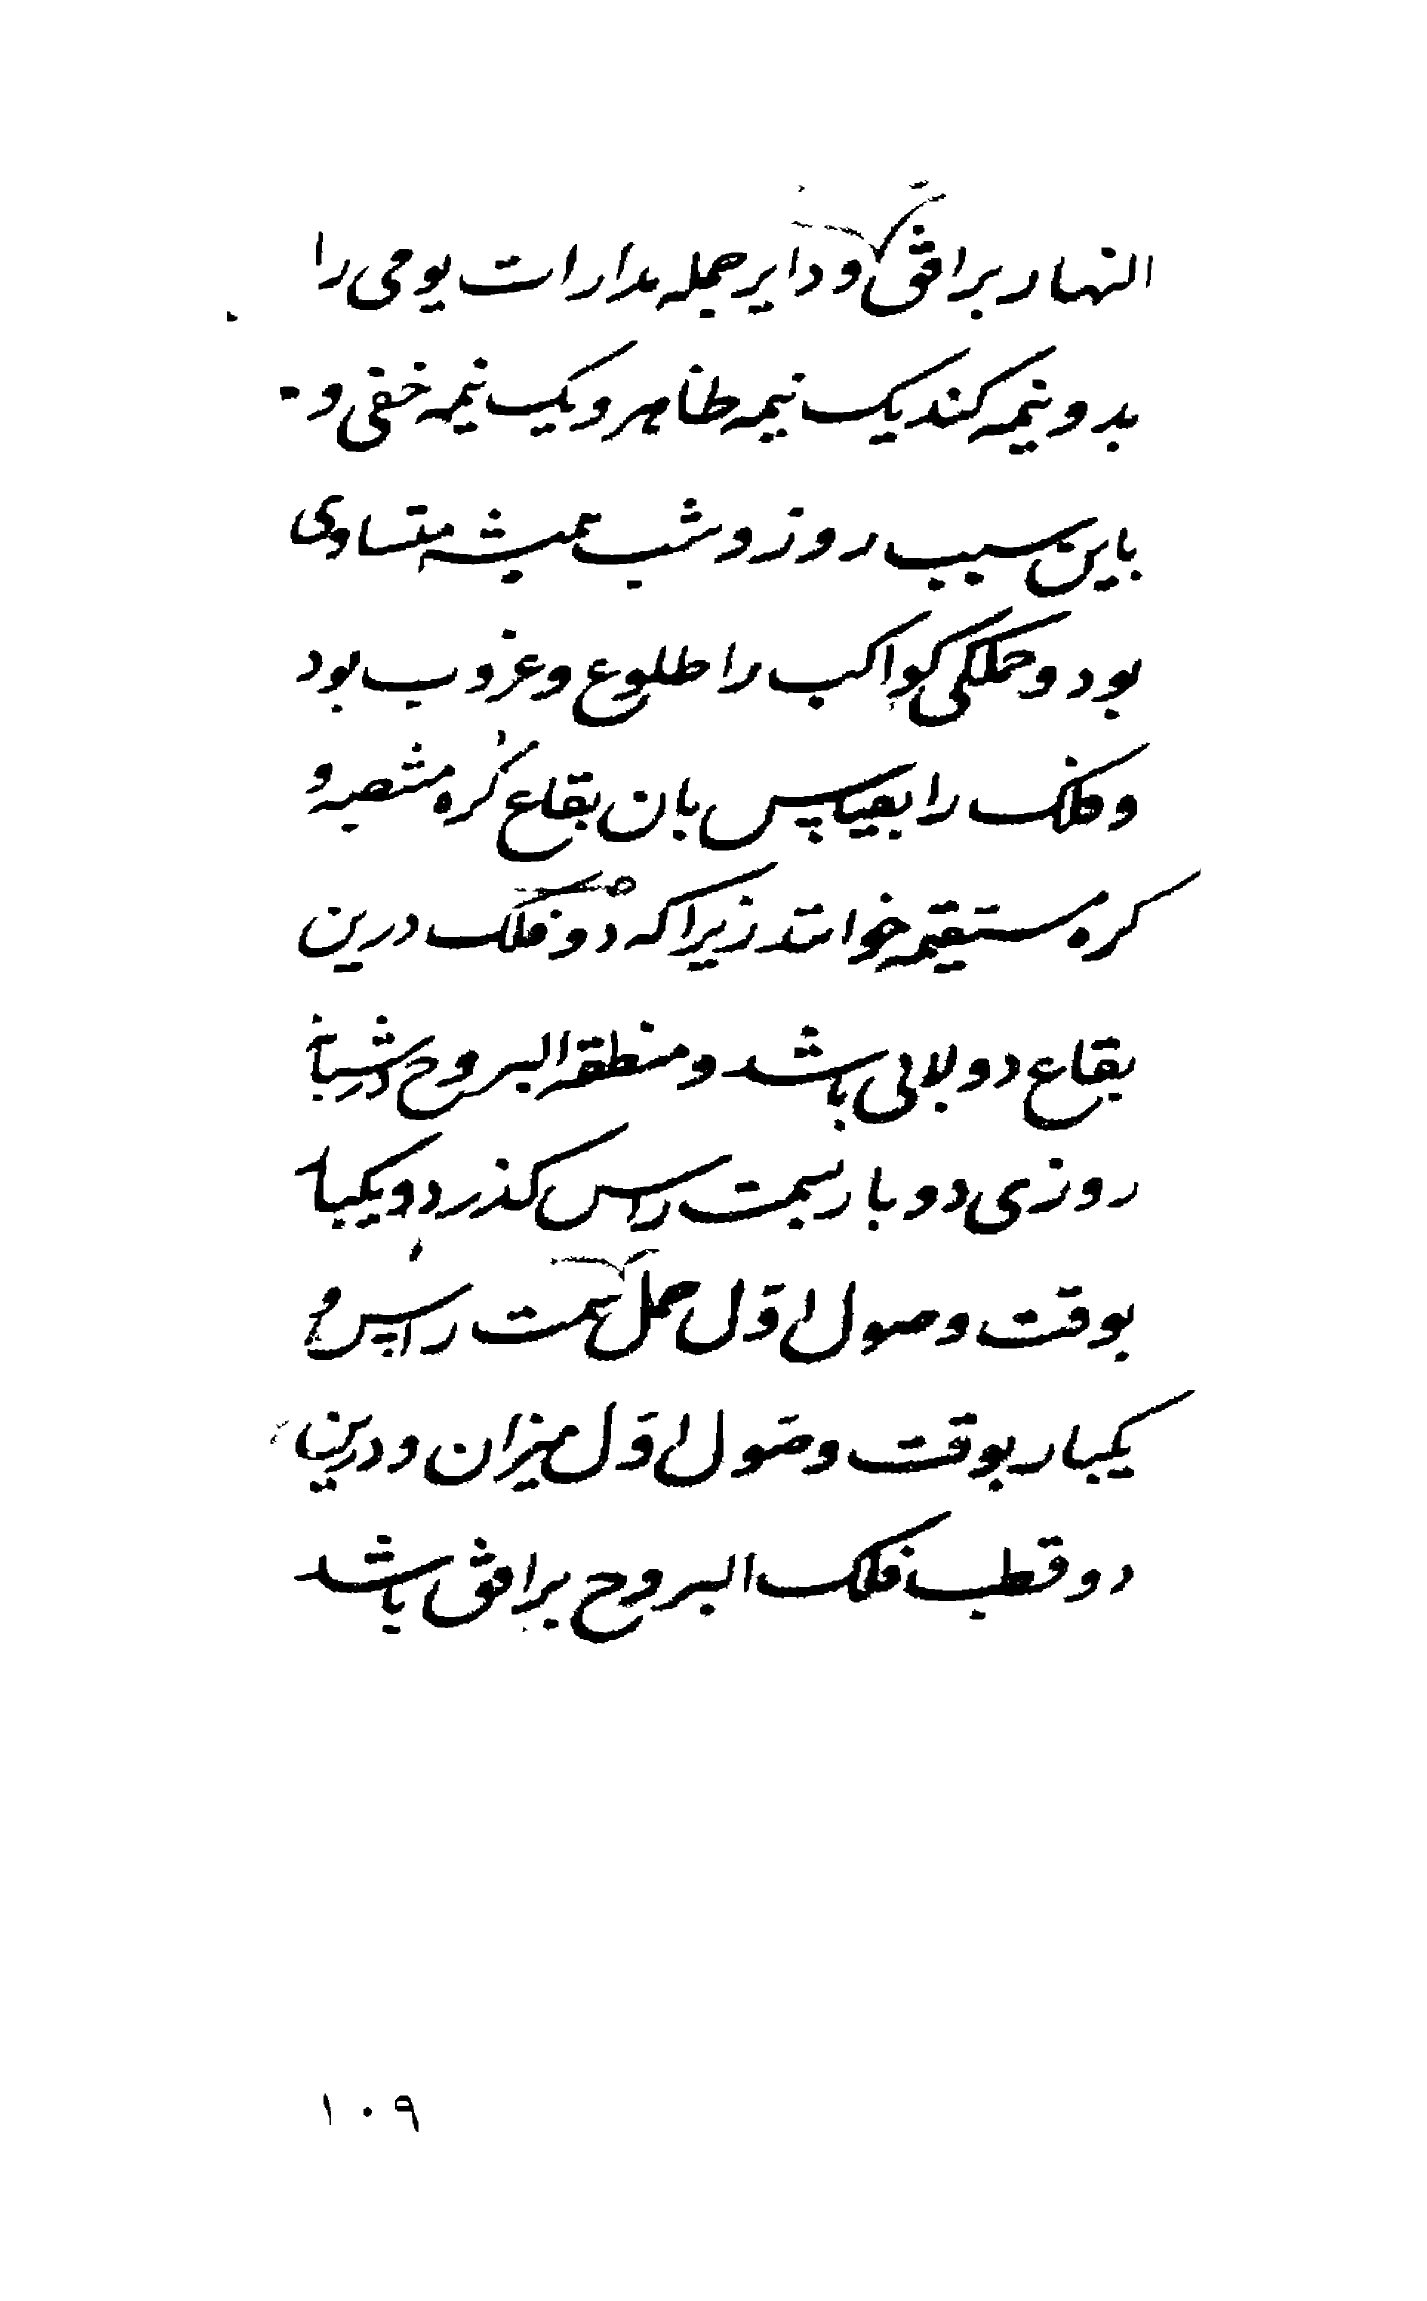 النهار بر افق و دایر جمله مدارات یومی را
بدو نیمه کند یک نیمه ظاهر و یک نیمه خفی و
باین سبب روز و شب همیشه متساوی
بود و جملگی کواکب را طلوع و غروب بود
و فلک را بقیاس بان بقاع کره منتصبه و
کره مستقیمه خوانند زیرا که دور فلک درین
بقاع دولابی باشد و منطقه البروج در شبان
روزی دو بار بسمت راس کذرد و یکبار
بوقت وصول اول حمل بسمت راس و
یکبار بوقت وصول اول میزان و درین
دو قطب فلک البروج بر افق باشد
۱۰۹